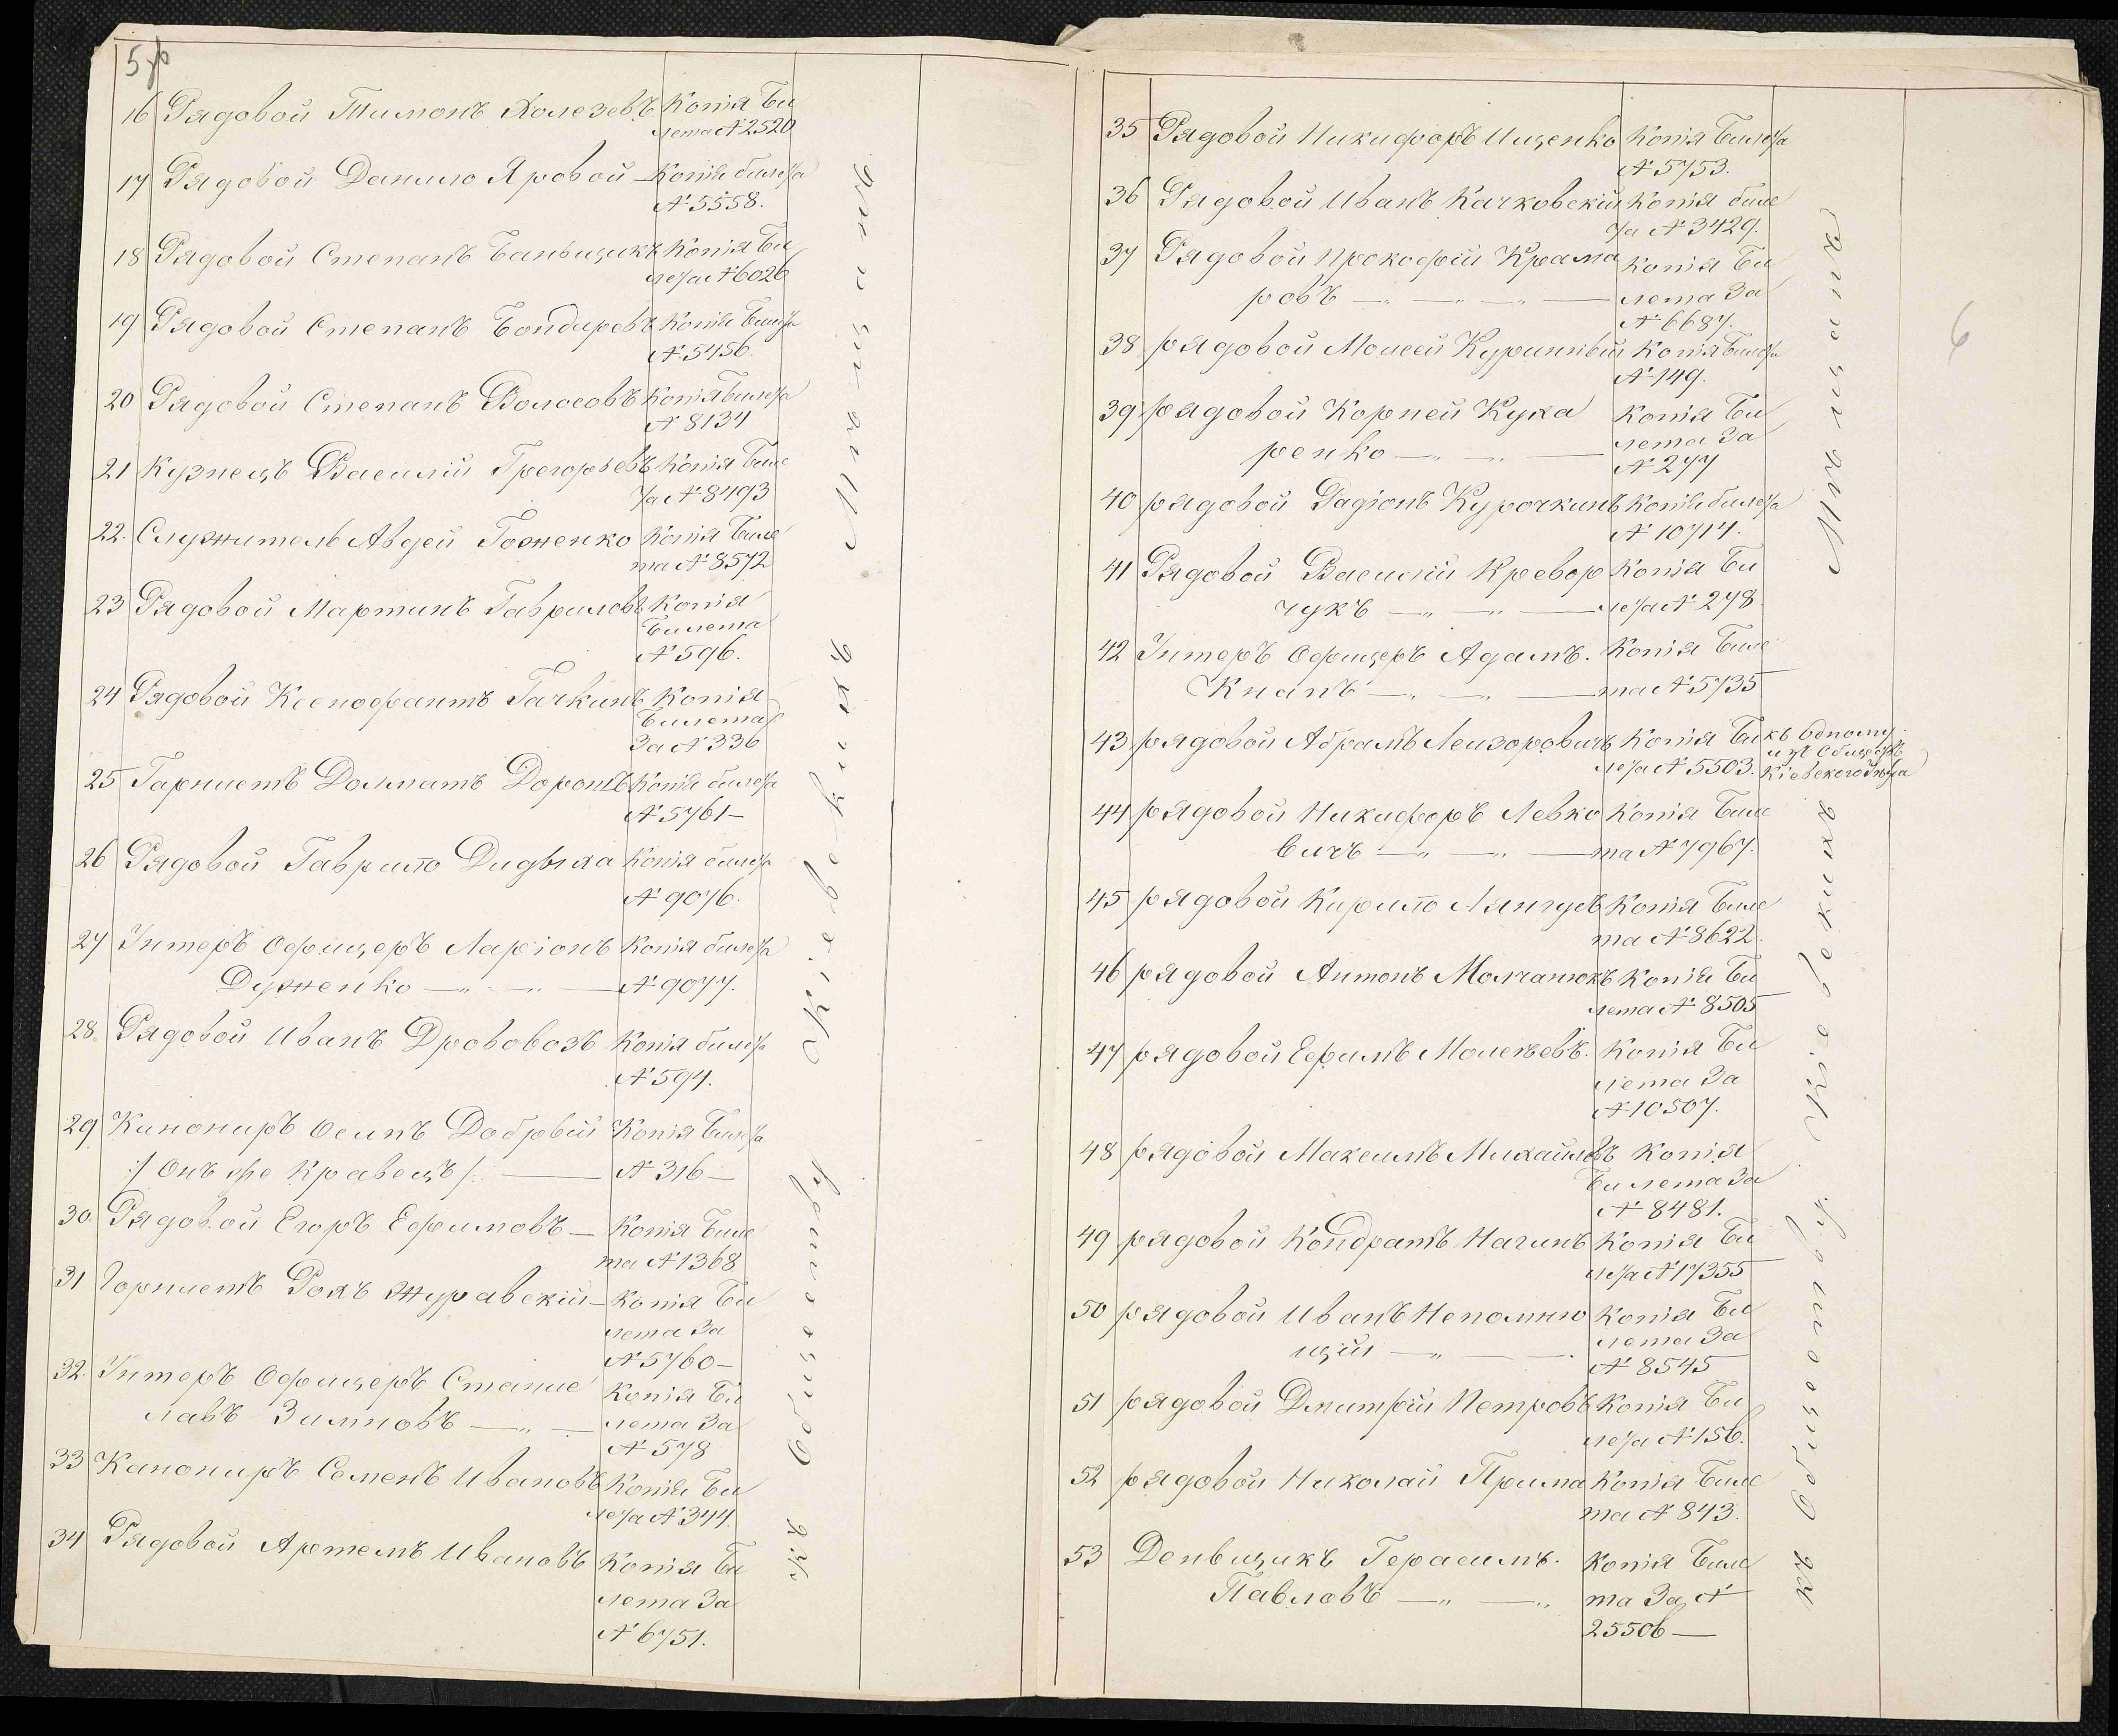 5 об
16 Рядовой Тимонъ Колезевъ Копія Би
лета № 2520
17 Рядовой Данило Яровой — Копія билета
№ 5558.
18 Рядовой Степанъ Баньщикъ Копія Би
лета № 6026
19 Рядовой Степанъ Бондыревъ Копія Билета
№ 5456.
20 Рядовой Степанъ Волосовъ Копія билета
№ 8134
21 Кузнецъ Василій Грегорьевъ Копія Биле
та № 8493
22. Служитель Авдей Гоженко Копія Биле
та № 8572
23 Рядовой Мартинъ Гавриловъ Копія
Билета
№ 596.
24 Рядовой Ксенофантъ Гачкинъ Копія
Билета
За № 336
25 Гарнистъ Долматъ Дорошъ Копія билета
№ 5761 —
26 Рядовой Гаврило Дидыха Копія билета
№ 9076.
27 Унтеръ Офицеръ Ларіонъ Копія билета
Дуженко — „ — „ — № 9077.
28. Рядовой Иванъ Дрововозъ Копія билета
№ 594.
29 Канониръ Осипъ Добрвій Копія Билета
:/ Онъ же Кравецъ /: — № 316 —
30. Рядовой Егоръ Ефимовъ — Копія Биле
та № 1368
31 Горнистъ Рохъ Журавскій — Копія Би
лета За
№ 5760 —
32. Унтеръ Офицеръ Станис
лавъ Зимновъ — „ — Копія Би
лета За
№ 578
33 Канониръ Семенъ Ивановъ Копія Би
лета № 344.
34 Рядовой Артемъ Ивановъ Копія Би
лета За
№ 6751.
Къ Обществамъ Кіевской
6
35 Рядовой Никифоръ Ищенко Копія Билета
№ 5753.
36 Рядовой Иванъ Качковскій Копія биле
та № 3429.
37 Рядовой Прокофій Крама
ровъ — „ — „ — „ — Копія Би
лета За
№ 6687.
38 рядовой Моисей Куринный Копія Билета
№ 149.
39 рядовой Корней Куха
ренко — „ — „ — Копія Би
лета За
№ 277
40 рядовой Радіонъ Курочкинъ Копія билета
№ 10714.
41 Рядовой Василій Кревор Копія Би
чукъ — „ — „ — лета № 278
42 Унтеръ Офицеръ Адамъ. Копія Биле
Кнапъ — „ — „ — та № 5735
43 рядовой Абрамъ Лейзоровичъ Копія Би
лета № 5503. къ Одному
изъ Обществъ
Кіевского Уезда
44 рядовой Никифоръ Левко Копія Биле
вичъ — „ — „ — та № 7967.
45 рядовой Кирило Лянгусъ Копія Биле
та № 8622.
46 рядовой Антонъ Молчанюкъ Копія Би
лета № 8505
47 рядовой Ефимъ Молеевъ. Копія Би
лета За
№ 10507.
48 рядовой Максимъ Михайловъ Копія
Билета За
№ 8481.
49 рядовой Кондратъ Начинъ Копія Би
лета № 17355
50 рядовой Иванъ Непомню
щій — „ — Копія Би
лета За
№ 8545
51 рядовой Дмитрій Петровъ Копія Би
лета № 156.
52 рядовой Николай Прима Копія Биле
та № 843.
53 Деньщикъ Герасимъ.
Павловъ — „ — „ Копія Биле
та За №
25506 —
Къ Обществамъ Кіевской